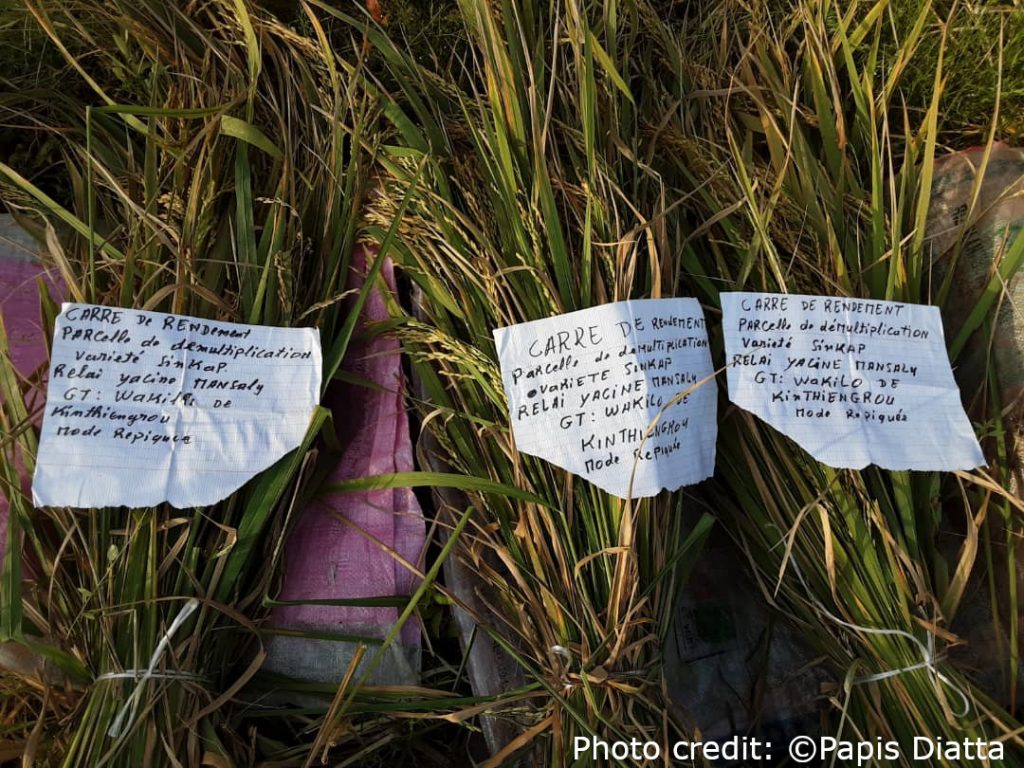 CARRE De RENDement
PARCelle de démultiplication
Varieté SinKaP
Relai yacine MANSALY
GT: WaKilo de
Kinthiengrou
Mode Repiquée
CARRE DE RENDEMENT
PARCelle de démultiplication
VARIETE SinKAP
RELAI YACINE MANSALY
GT: WAKILO DE
KINTHIENGROU
Mode Repiquée
CARRE DE RENDEMENT
PARCelle de démultiplication
Varieté SinKAP
RELAI YACINE MANSALY
GT: WAKILO DE
KinTHIENGROU
Mode Repiquée
Photo credit: ©Papis Diatta